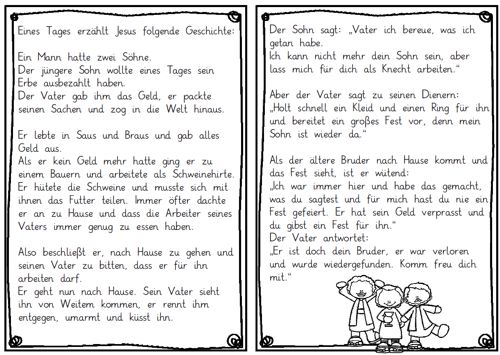 Eines Tages erzählt Jesus folgende Geschichte:
Ein Mann hatte zwei Söhne.
Der jüngere Sohn wollte eines Tages sein
Erbe ausbezahlt haben.
Der Vater gab ihm das Geld, er packte
seinen Sachen und zog in die Welt hinaus.
Er lebte in Saus und Braus und gab alles
Geld aus.
Als er kein Geld mehr hatte ging er zu
einem Bauern und arbeitete als Schweinehirte.
Er hütete die Schweine und musste sich mit
ihnen das Futter teilen. Immer öfter dachte
er an zu Hause und dass die Arbeiter seines
Vaters immer genug zu essen haben.
Also beschließt er, nach Hause zu gehen und
seinen Vater zu bitten, dass er für ihn
arbeiten darf.
Er geht nun nach Hause. Sein Vater sieht
ihn von Weitem kommen, er rennt ihm
entgegen, umarmt und küsst ihn.
Der Sohn sagt: „Vater ich bereue, was ich
getan habe.
Ich kann nicht mehr dein Sohn sein, aber
lass mich für dich als Knecht arbeiten."
Aber der Vater sagt zu seinen Dienern:
„Holt schnell ein Kleid und einen Ring für ihn
und bereitet ein großes Fest vor, denn mein
Sohn ist wieder da."
Als der ältere Bruder nach Hause kommt und
das Fest sieht, ist er wütend:
„Ich war immer hier und habe das gemacht,
was du sagtest und für mich hast du nie ein
Fest gefeiert. Er hat sein Geld verprasst und
du gibst ein Fest für ihn."
Der Vater antwortet:
„Er ist doch dein Bruder, er war verloren
und wurde wiedergefunden. Komm freu dich
mit."